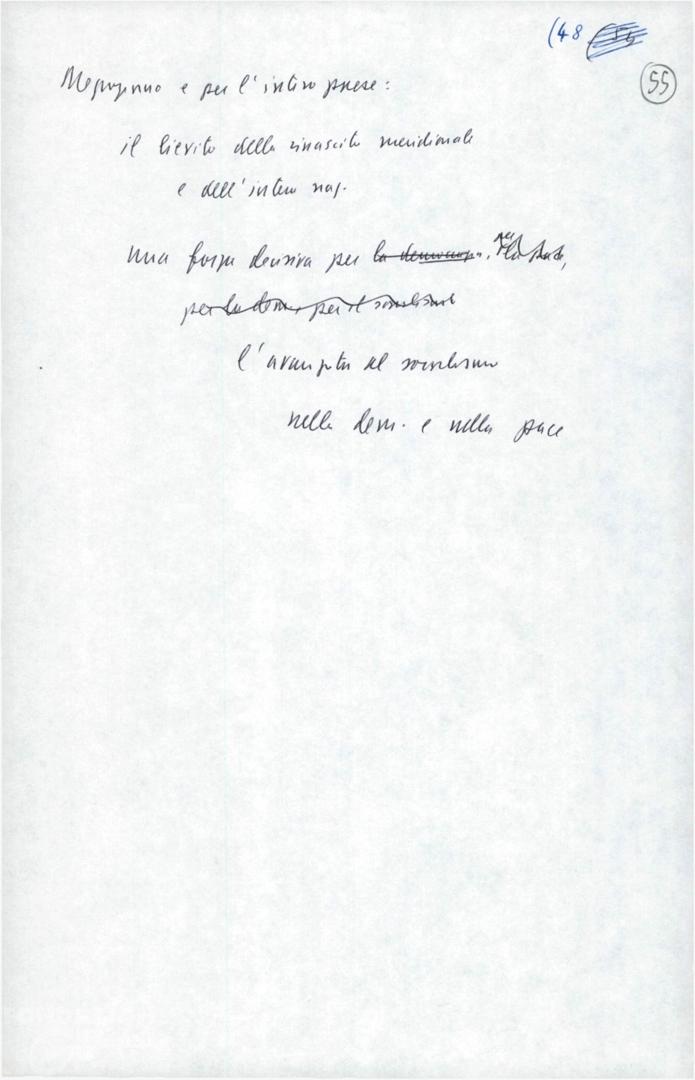 (48
55
Mezzogiorno e per l'intero paese:
il lievito della rinascita meridionale
e dell'intera naz.
una forza decisiva per la democrazia, per la
per la dem., per il socialismo
l'avanzata al socialismo
nella dem. e nella pace